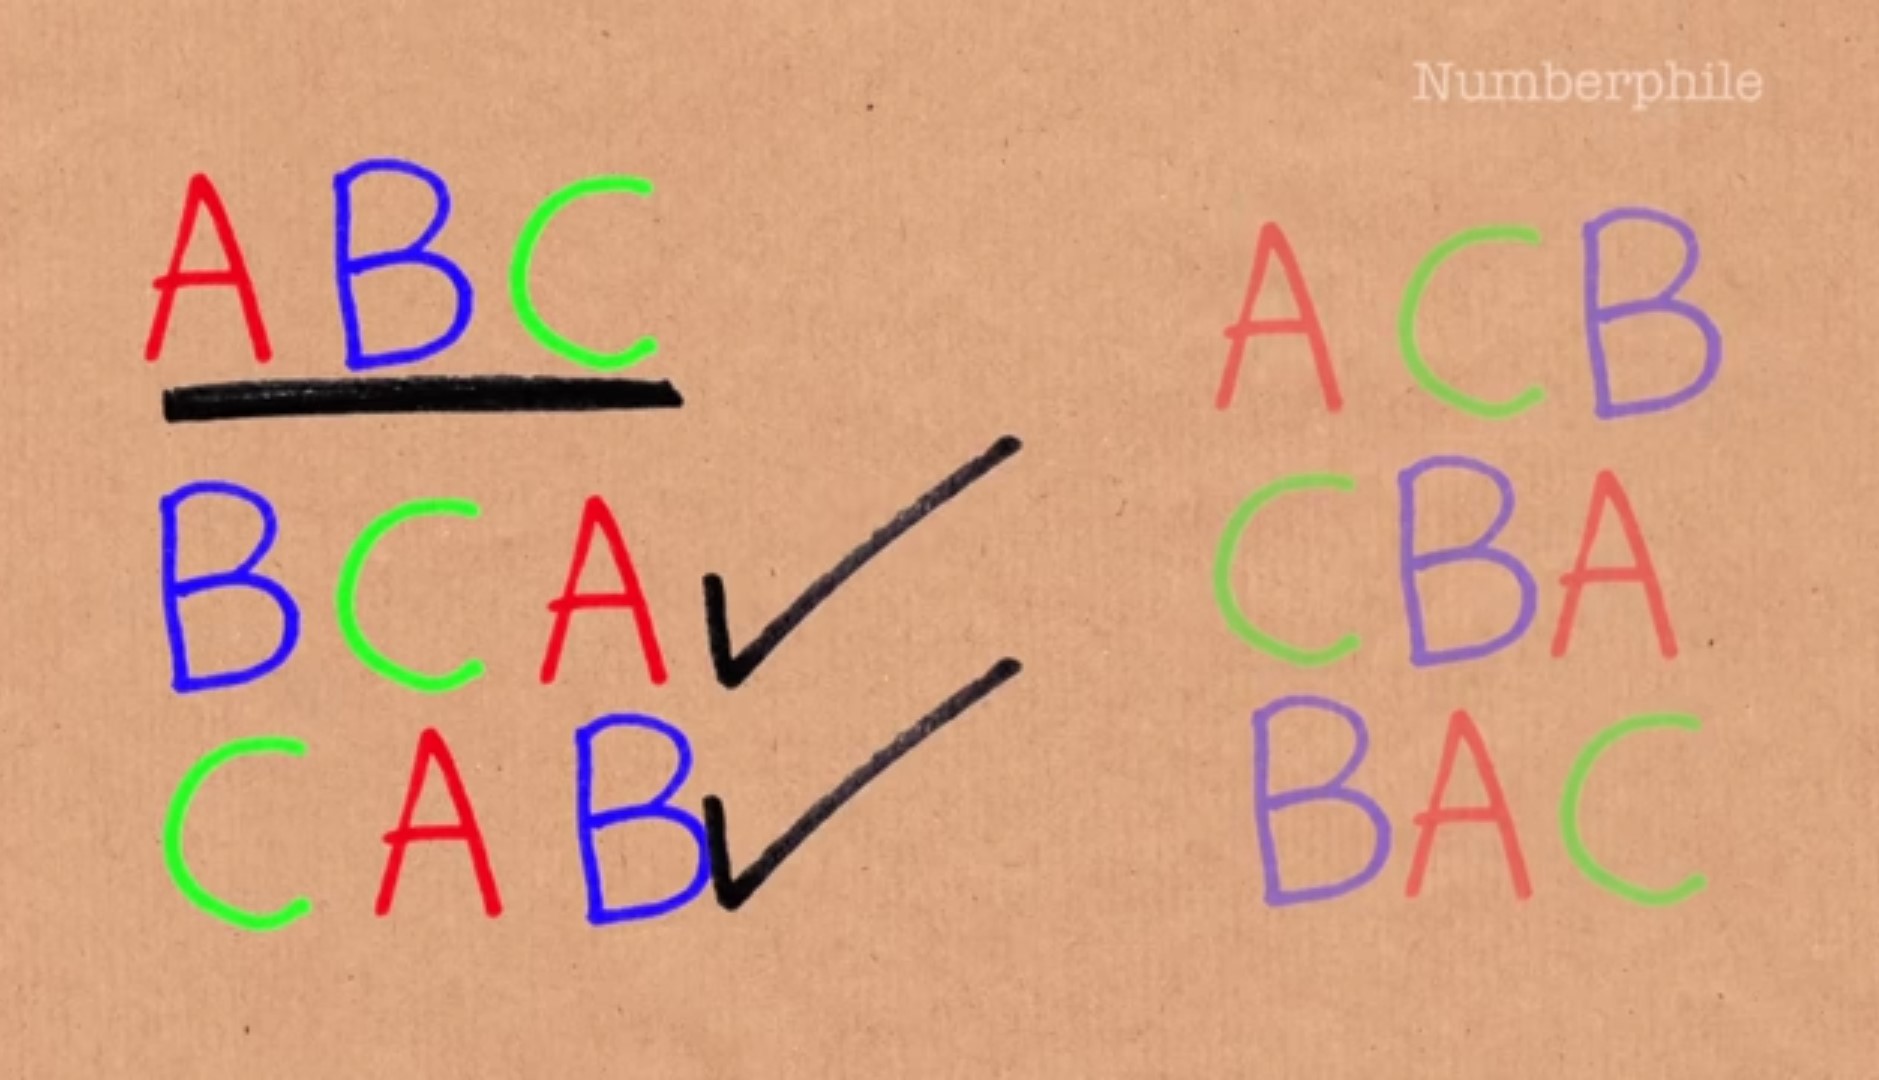 Numberphile
A B C
B C A
C A B
A C B
C B A
B A C